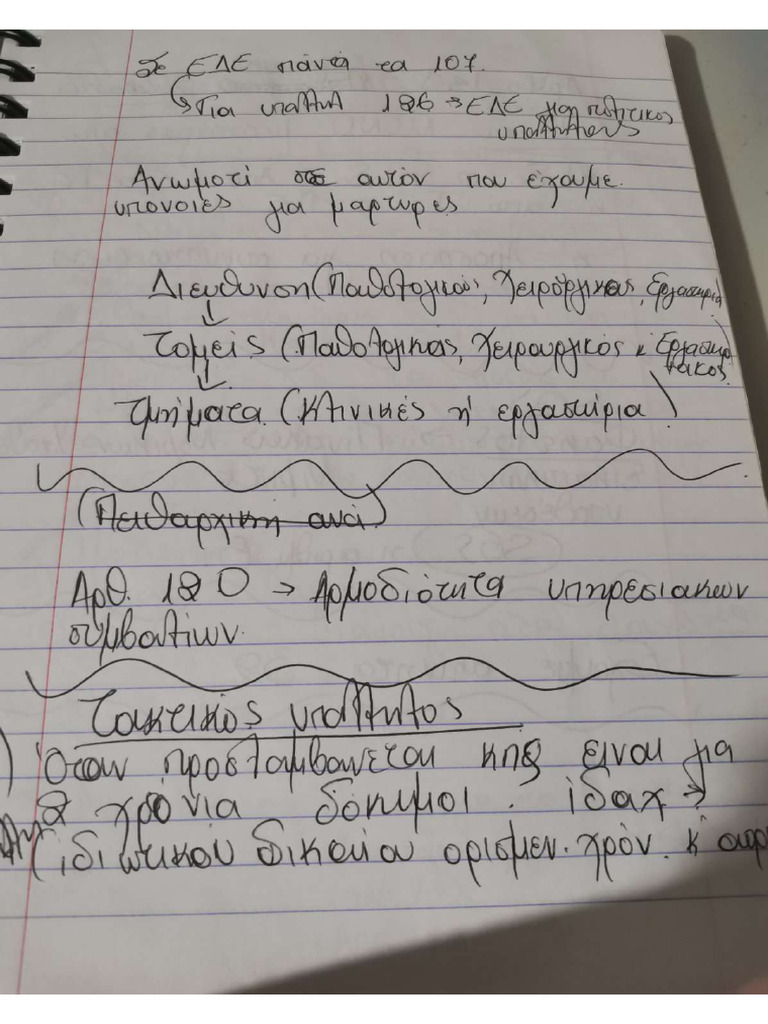 Σε ΕΔΕ πάντα τα 107.
Για υπαλλ 126 → ΕΔΕ για πολιτικος
υπαλληλους
Ανωμοτί σε αυτόν που έχουμε.
υπονοιες για μαρτυρες
Διευθυνση (Παθολογικός, Χειρούργικος, Εργαστηρια)
↓
Τομείς (Παθολογικός, Χειρουργικός κ Εργαστηρ
ιακος)
↓
Τμήματα (Κλινικές ή εργαστήρια)
(Πειθαρχική ανά)
Αρθ. 120 → Αρμοδιότητα υπηρεσιακων
συμβουλίων.
Τακτικός υπαλληλος
Όταν προσλαμβανεται κπς ειναι για
2 χρόνια δόκιμοι. ιδαχ →
(ιδιωτικού δικαίου ορισμεν. χρόν. κ αορ